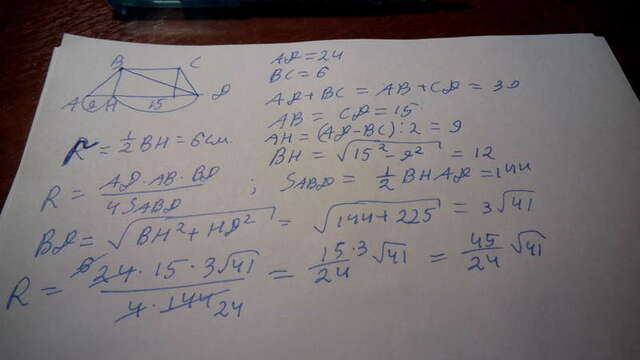 B C
A 9 H 15 D
AD = 24
BC = 6
AD + BC = AB + CD = 30
AB = CD = 15
AH = (AD - BC) : 2 = 9
r = 1/2 BH = 6 см.
BH = √(15² - 9²) = 12
R = (AD · AB · BD) / (4 SABD) ; SABD = 1/2 BH AD = 144
BD = √(BH² + HD²) = √(144 + 225) = 3√41
R = (24 · 15 · 3√41) / (4 · 144) = 15/24 · 3√41 = 45/24 √41